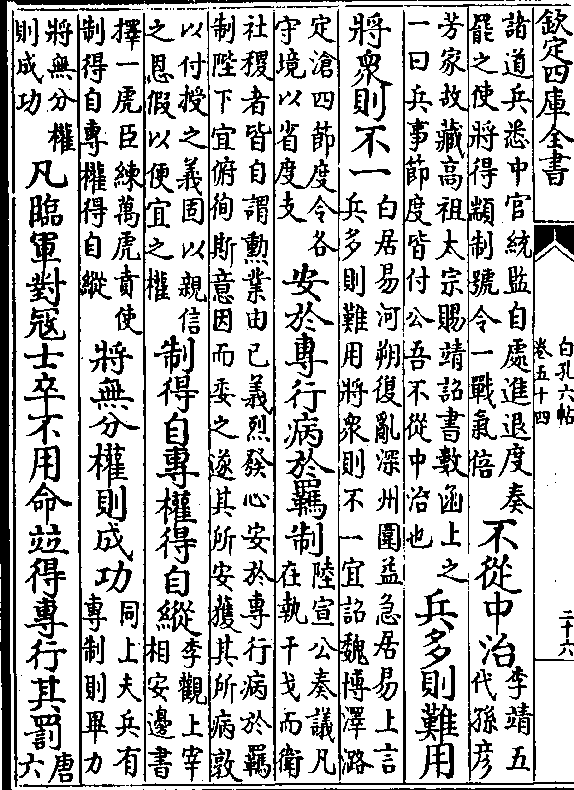 欽定四庫全書
白孔六帖
卷五十四
二十六
諸道兵悉中官統監自處進退度奏
罷之使將得顓制號令一戰氣倍
不從中治
李靖五
代孫彦
芳家故藏髙祖太宗賜靖詔書數函上之
一曰兵事節度皆付公吾不從中治也
兵多則難用
將衆則不一
白居易河朔復亂深州圍益急居易上言
兵多則難用將衆則不一宜詔魏博澤潞
定滄四節度令各
守境以省度支
安於專行病於羈制
陸宣公奏議凡
在執干戈而衛
社稷者皆自謂勲業由已義烈發心安於專行病於羈
制陛下宜俯徇斯意因而委之遂其所安獲其所病敦
以付授之義固以親信
之恩假以便宜之權
制得自專權得自縱
李觀上宰
相安邊書
擇一虎臣練萬虎賁使
制得自專權得自縱
將無分權則成功
同上夫兵有
專制則畢力
將無分權
則成功
凡臨軍對冦士卒不用命竝得專行其罰
唐
六